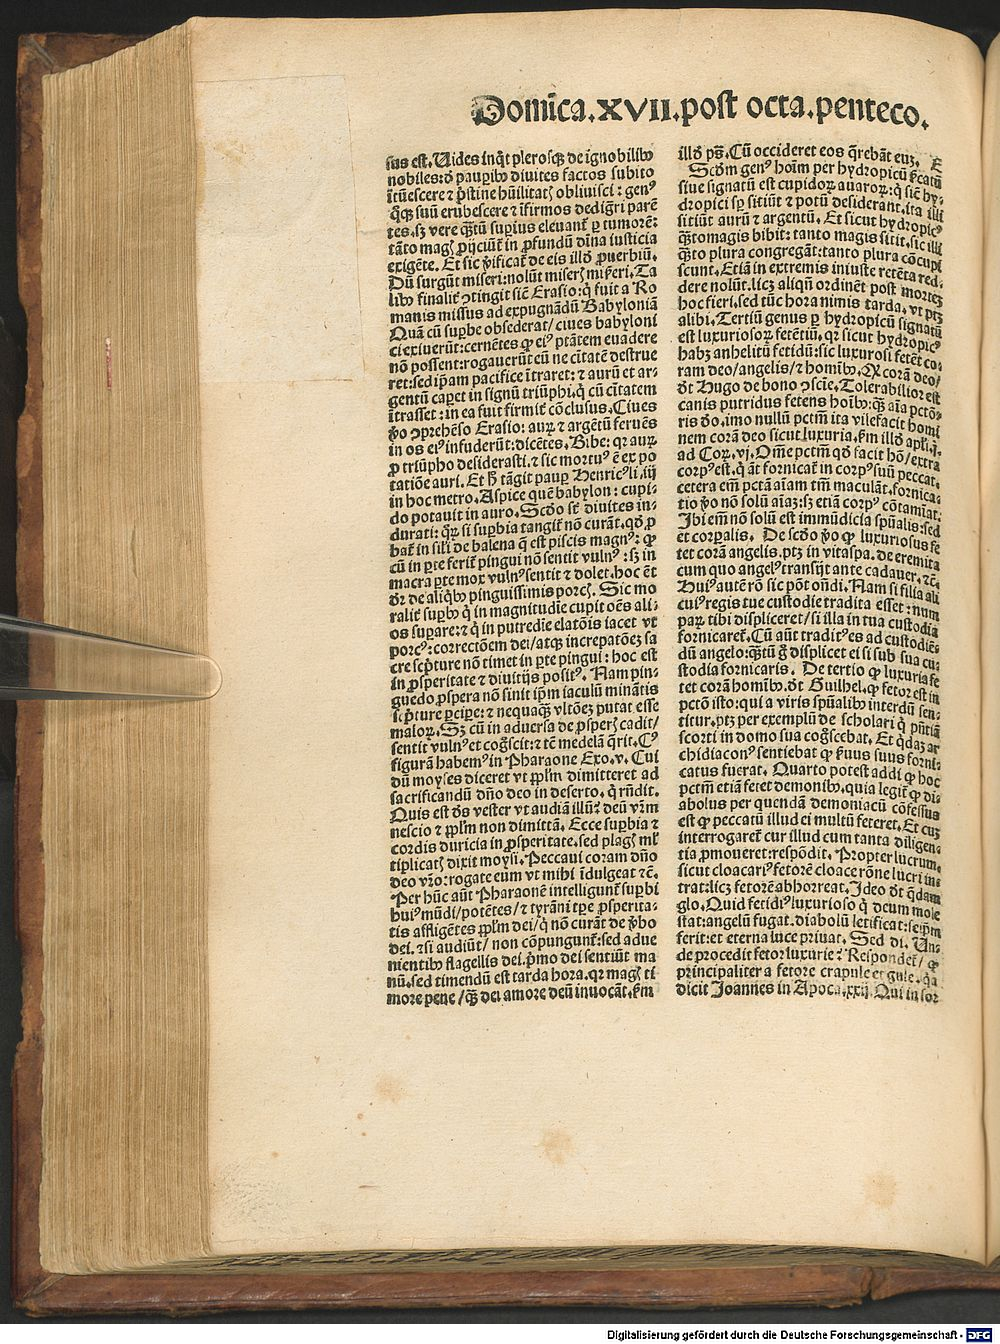 Domĩca.XVII.post octa.penteco.
sus est. Uides inq̃t plerosq; de ignobilibꝰ
nobiles: ⁊ de paupibꝰ diuites factos subito
ĩtũescere ⁊ p̃stine hũilitatꝭ obliuisci: genꝰ
q̃q; suũ erubescere ⁊ ĩfirmos dedig̃ri parẽ
tes. sꝫ vere q̃ꝫtũ supius eleuant᷑ ꝑ tumorẽ:
tãto magꝭ ꝓijciunt᷑ in ꝓfundũ diĩna iusticia
exigẽte. Et sic ṽificat᷑ de eis illđ ꝓuerbiũ.
Dũ surgũt miseri: nolũt miserꝭ miẽri. Ta
libꝰ finalit᷑ ꝯtingit siẽ Erasio: q̃ fuit a Ro
manis missus ad expugnãdũ Babyloniã
Quã cũ supbe obsederat/ ciues babyloni
ci exiuerũt: cernẽtes ꝙ eiꝰ ptãtem euadere
nõ possent: rogauerũt eũ ne ciẽatẽ destrue
ret: sed ip̃am pacifice ĩtraret: ⁊ aurũ et ar-
gentũ caperet in signũ triũphi. q̃ cũ ciẽtatem
ĩtrasset: in ea fuit firmit᷑ cõclusus. Ciues
ṽo ꝯprehẽso Erasio: auꝝ ⁊ argẽtũ feruẽs
in os eiꝰ infuderũt: dicẽtes. Bibe: qꝛ auꝝ
ꝓ triũpho desiderasti. ⁊ sic mortuꝰ ẽ ex po
tatiõe auri. Et h̃ tãgit pauꝑ Henricꝰ li.iij
in hoc metro. Aspice quẽ babylon: cupi-
do potauit in auro. Scđo st̃ diuites in-
durati: q̃ꝝ si supbia tangit᷑ nõ curãt. qđ ꝓ
bat᷑ in sili de balena q̃ est piscis magnꝰ: ꝙ
cũ in ꝑte ferit᷑ pingui nõ sentit vulnꝰ: sꝫ in
macra ꝑte mox vulnꝰ sentit ⁊ dolet. hoc ẽt
đr de aliq̃bꝰ pinguissimis porcꝭ. Sic mo
ralit᷑ supbꝰ q̃ in magnitudĩe cupit oẽs ali-
os supare: ⁊ q̃ in putredĩe elatõis iacet vt
porcꝰ: correctõem dei/ atq; increpatõeꝫ sa
cre sc̃pture nõ timet in ꝑte pingui: hoc est
in ꝓsperitate ⁊ diuitijs positꝰ. Nam pin-
guedo ꝓspera nõ sinit ip̃m iaculũ minãtis
sc̃pture ꝑcipe: ⁊ nequaq̃ꝫ vltõeꝫ putat esse
maloꝝ. Sꝫ cũ in aduersa de ꝓsperꝭ cadit/
sentit vulnꝰ et cog̃scit: ⁊ tẽ medelã q̃rit. Cꝰ
figurã habemꝰ in Pharaone Exo.v. Cui
dũ moyses diceret vt pp̃lm dimitteret ad
sacrificandũ dño deo in deserto. q̃ rñdit.
Quis est đs vester vt audiã illũ: ⁊ deũ vr̃m
nescio ⁊ pp̃lm non dimittã. Ecce supbia ⁊
cordis duricia in ꝓsperitate. sed plagꝭ ml̃
tiplicatꝭ dixit moysi. Peccaui coram dño
deo vr̃o: rogate eũm vt mihi ĩdulgeat ⁊c̃.
Per hũc aũt Pharaonẽ intelligunt᷑ supbi
huiꝰ mũdi/ potẽtes/ ⁊ tyrãni tꝑe ꝓsperita-
tis affligẽtes pp̃lm dei/ q̃ nõ curãt de ṽbo
dei. ⁊ si audiũt/ non cõpungunt᷑: sed adue
nientibꝰ flagellis dei. p̃mo dei sentiũt ma
nũ. sed timendũ est tarda hora. qꝛ magꝭ ti
more pene/ q̃ꝫ dei amore deũ inuocãt. k̃m
illđ ps̃. Cũ occideret eos q̃rebãt euꝫ. E
Scđm genꝰ hoĩm per hydropicũ p̃catũ
siue signatũ est cupidoꝝ auaroꝝ: q̃ siẽ hy-
dropici sꝑ sitiũt ⁊ potũ desiderant. ita illi
sitiũt aurũ ⁊ argentũ. Et sicut hydropicꝰ
q̃ꝫtomagis bibit: tanto magis sitit. sic illi
q̃ꝫto plura congregãt: tanto plura cõcupi
scunt. Etiã in extremis iniuste retẽta red-
dere nolũt. licꝫ aliqñ ordinẽt post morteꝫ
hoc fieri. sed tũc hora nimis tarda. vt ptꝫ
alibi. Tertiũ genus ꝑ hydropicũ signatũ
est luxuriosoꝝ fetẽtiũ. qꝛ sicut hydropicꝰ
habꝫ anhelitũ fetidũ: sic luxurosi fetẽt co-
ram deo/ angelis/ ⁊ homĩbꝰ. Qđ corã deo/
đt Hugo de bono ꝯsciẽ. Tolerabilior est
canis putridus fetens hoĩbꝰ: q̃ꝫ aĩa pctõ-
ris đo. imo nullũ pctm̃ ita vilefacit homi
nem corã deo sicut luxuria. k̃m illđ apl̃i. j.
ad Coꝝ.vj. Om̃e pctm̃ qđ facit hõ/ extra
corpꝰ est. q̃ aũt fornicat᷑ in corpꝰ suũ peccat.
cetera em̃ pctã aĩam tm̃ maculãt. fornica-
tio ṽo nõ solũ aĩaꝫ: sꝫ etiã corpꝰ cõtamĩat.
Ibi em̃ nõ solũ est immũdicia spũalis: sed
et corꝑalis. De scđo ṽo ꝙ luxuriosus fe
tet corã angelis. ptꝫ in vitaspa. de eremita
cum quo angelꝰ transijt ante cadauer. ⁊c̃.
Huiꝰ autẽ rõ sic põt oñdi. Nam si filia ali
cuiꝰ regis tue custodie tradita esset: num
paꝝ tibi displiceret/ si illa in tua custodia
fornicaret᷑. Cũ aũt traditꝰ es ad custodiẽ-
dũ angelo: q̃ꝫtũ g̃ displicet ei si sub sua cu-
stodia fornicaris. De tertio ꝙ luxuria fe
tet corã homĩbꝰ. đt Guilhel. ꝙ fetor est in
pctõ isto: qui a viris spũalibꝰ interdũ sen-
titur. ptꝫ per exemplũ de scholari q̃ pñtiã
scorti in domo sua cog̃scebat. Et q̃daꝫ ar
chidiaconꝰ sentiebat ꝙ ẽuus suus forni-
catus fuerat. Quarto potest addi ꝙ hoc
pctm̃ etiã fetet demonibꝰ. quia legit᷑ ꝙ di-
abolus per quendã demoniacũ cõfessus
est ꝙ peccatũ illud ei multũ feteret. Et cuꝫ
interrogaret᷑ cur illud cum tanta diligen-
tia ꝓmoueret: respõdit. Propter lucrum.
sicut cloacariꝰ fetorẽ cloace rõne lucri in-
trat: licꝫ fetorẽ abhorreat. Ideo đt q̃dam
glo. Quid fetidiꝰ luxurioso q̃ deum mole
stat: angelũ fugat. diabolũ letificat: seip̃m
ferit: et eterna luce priuat. Sed di. Un-
de procedit fetor luxurie? Respondet᷑/ ꝙ
principaliter a fetore crapule et gule. q̃a
dicit Joannes in Apoca.xxij. Qui in sor
Digitalisierung gefördert durch die Deutsche Forschungsgemeinschaft - DFG